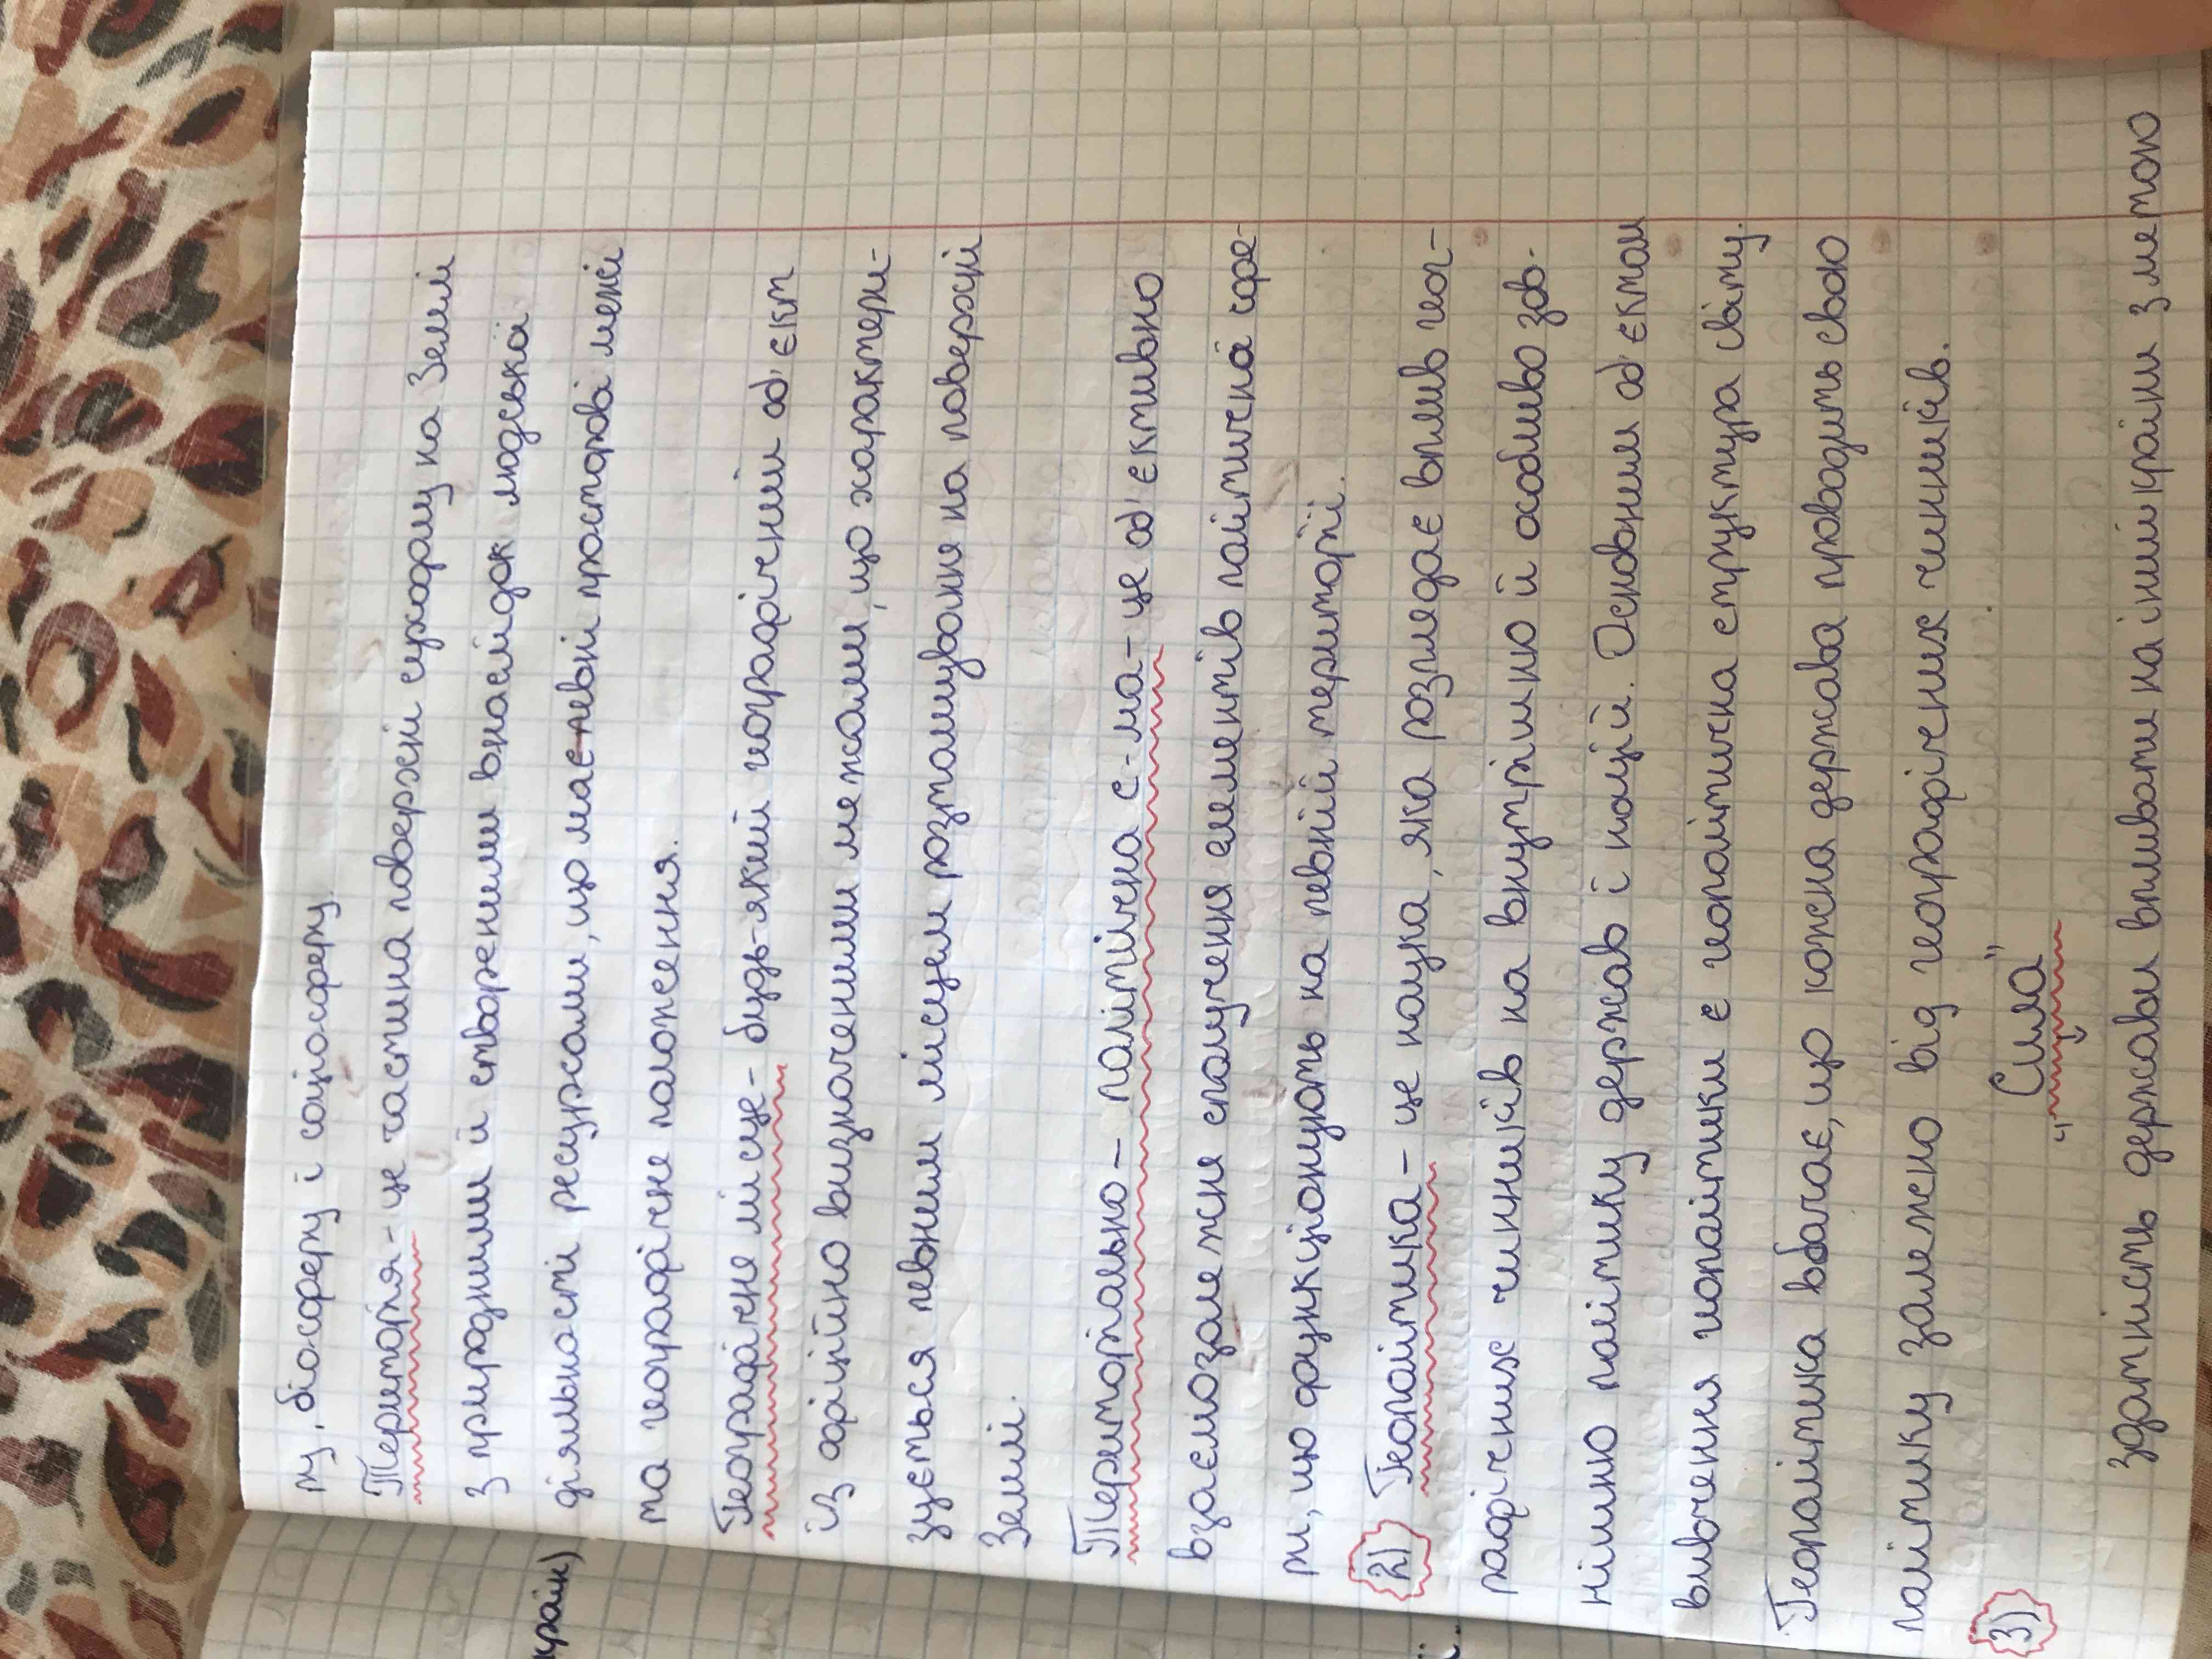 ру, біосферу і соціосферу.
Територія - це частина поверхні суходолу на Землі
з природними й створеними внаслідок людської
діяльності ресурсами, що має певні просторові межі
та географічне положення.
Географічне місце - будь-який географічний об'єкт
із офіційно визначеними межами, що характери-
зується певним місцем розташування на поверхні
Землі.
Територіально - політична с-ма - це об'єктивно
взаємозалежне сполучення елементів політичної сфе-
ри, що функціонують на певній території.
2) Геополітика - це наука, яка розглядає вплив геог-
рафічних чинників на внутрішню й особливо зов-
нішню політику держав і націй. Основним об'єктом
вивчення геополітики є геополітична структура світу.
Геополітика вбачає, що кожна держава проводить свою
політику залежно від географічних чинників.
3) "Сила"
здатність держави впливати на інші країни з метою
країн)